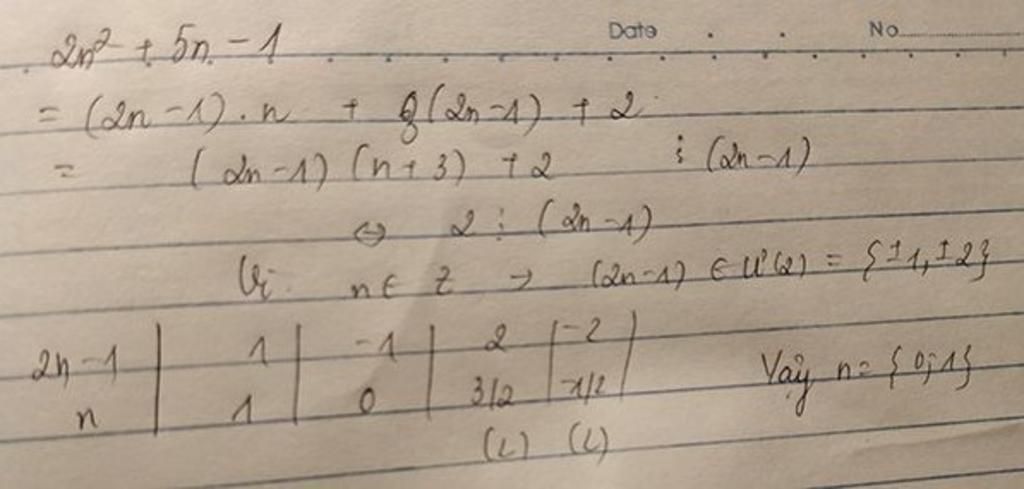 Date No.
2n² + 5n - 1
= (2n - 1) . n + 3(2n - 1) + 2
= (2n - 1) (n + 3) + 2 ⋮ (2n - 1)
⇔ 2 ⋮ (2n - 1)
Vì n ∈ Z → (2n - 1) ∈ Ư(2) = {±1, ±2}
2n - 1 | 1 | -1 | 2 | -2 |
n | 1 | 0 | 3/2 | -1/2 |
Vậy n = {0; 1}
(L) (L)